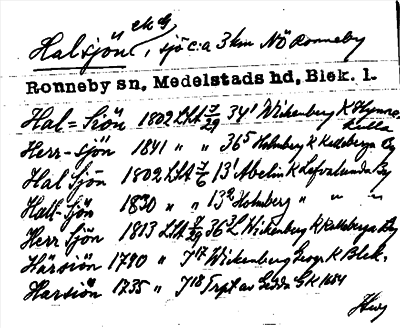 Halsjön ek G, sjö c:a 3 km NÖ Ronneby
Ronneby sn, Medelstads hd, Blek. l.
Hal=Siön 1802 LSA 7/29 34¹ Wickenberg K
Herr-sjön 1841 " " 36⁵ Holmberg K Kalleberga By
Hal Sjön 1802 LSA 7/6 13¹ Abelin K By
Hall-Sjön 1830 " " 13² Holmberg " " "
Herr Sjön 1813 LSA 36³ Wickenberg K Kalleberga By
Härsiön 1790 " 7¹⁷ Wickenberg Geogr K Blek.
Harsiön 1735 " 7¹⁸ Trpt av Gedda GK 1684